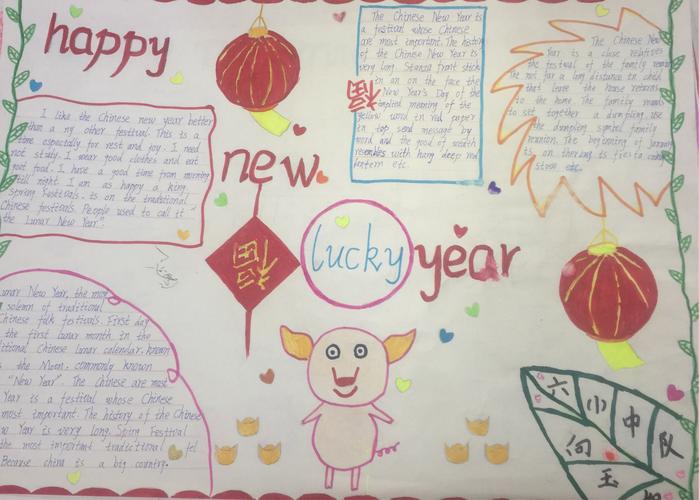 happy
new
lucky
year
福
福
I like the Chinese new year better
than a ny other festival. This is a
time especially for rest and joy. I need
not study. I wear good clothes and eat
good food. I have a good time from morning
till night. I am as happy a king
Spring festivals. is on the traditional
Chinese festivals. People used to call it "
the Lunar New Year".
The Chinese New Year is
a festival whose Chinese
are most important. The history
of the Chinese New Year is
very long. front stick
in an on the face the
New Year's Day of the
meaning of the
yellow word in red paper
in top send message by
word and the good of wealth
resembles with hang deep red
lantern etc.
The Chinese New
Year is a close relatives
the festival of the family
The not far a long distance
that leave the house returns
to the home. The family
to sit together a dumpling, use
the dumpling symbol family
reunion. The beginning of January
is on
stove etc.
unar New Year, the most
solemn of traditional
Chinese folk festivals. First day
the first lunar month in the
ditional Chinese lunar calendar. known
the Moon, commonly known
"New Year". The Chinese are most
Year is a festival whose Chinese
most important. The history of the Chinese
w Year is very long. Sping Festival
the most important tradictional fel
Because china is a big country.
六小中队
向玉